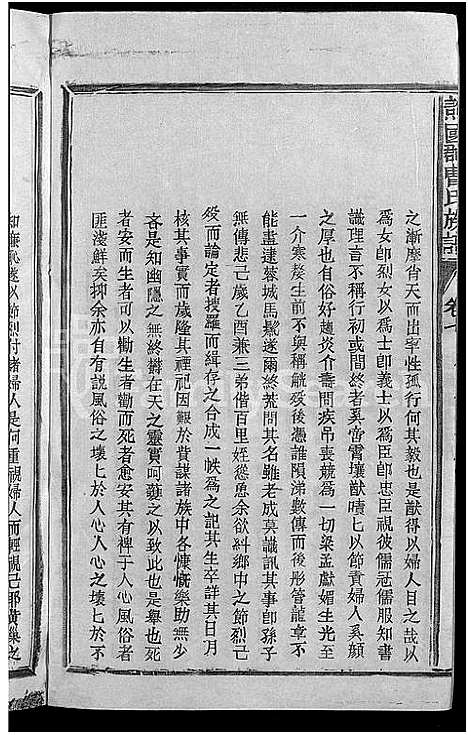 譙國郡曹氏族譜 卷七
之漸摩脅天而出率性孤行何其毅也是猷得以婦人目之哉以
為女卽烈女以為士卽義士以為臣卽忠臣視彼儒冠儒服知書
識理言不稱行初或間終者奚啻霄壤獣嘖七以節貴婦人奚顏
之厚也俗好趨炎介壽問疾吊喪競為一切梁孟獻媚生光至
一介寒嫠生前不與稱觥歿後憑誰隕涕數傳而後彤管龍章不
能盡逮蔡城馬鬛遂爾終荒問其名雖老成莫識訊其事卽孫子
無傳悲已歲乙酉兼三弟偕百里姪慫恿余欲糾鄉中之節烈已
歿而論定者搜羅而緝存之合成一帙為之記其生卒詳其日月
核其事實而歲隆其禋祀因艱於貴謀諸族中各慷慨樂助無少
吝是知幽隱之無終欝在天之靈實呵護之以致此也是舉也死
者安而生者可以勸生者勸而死者愈安其有裨于人心風俗者
匪淺鮮矣抑余亦自有説風俗之壞七於人心人心之壞七於不
知廉恥遂以節烈付諸婦人是何重視婦人而輕視己耶黄巢之